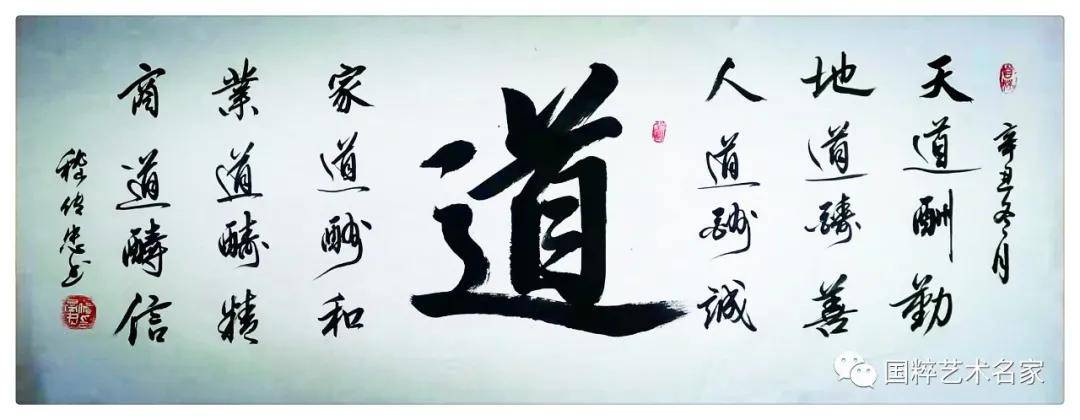 辛丑冬月
天道酬勤
地道醻善
人道酬誠
道
家道酬和
業道醻精
商道醻信
国粹艺术名家